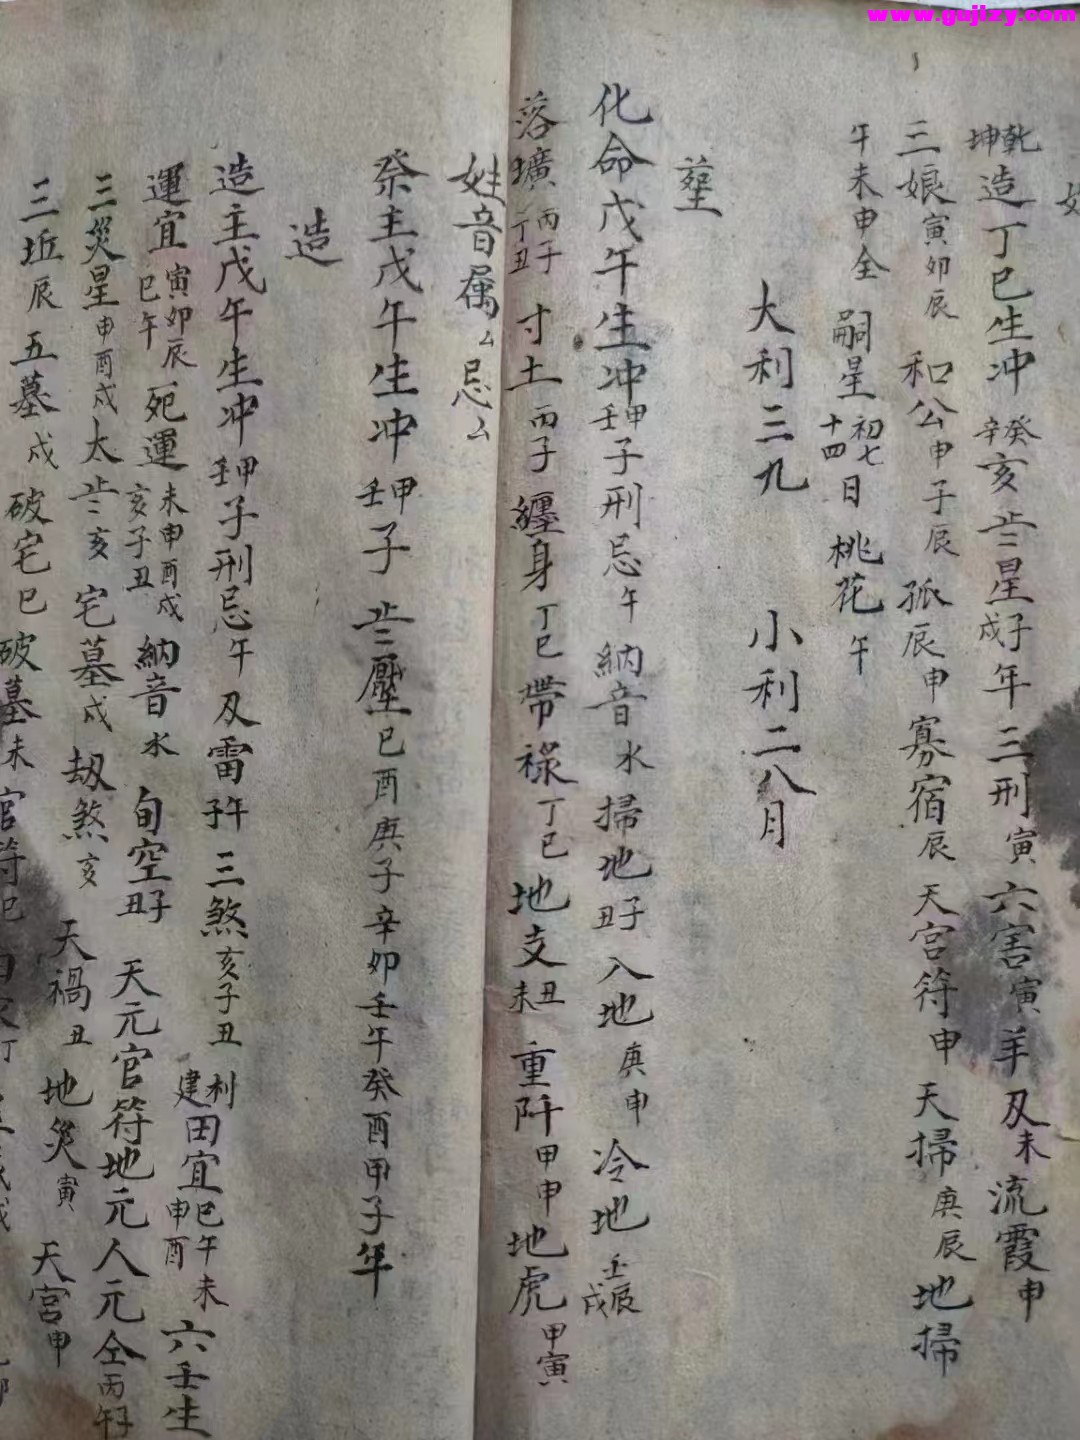 www.gujlzy.com
乾坤造丁巳生冲癸辛亥 星子戌年三刑寅六害寅羊刃未流霞申
三娘寅卯辰 和公申子辰 孤辰申寡宿辰 天官符申 天掃庚辰地掃
午未申全 嗣星初七十四日 桃花午
大利三九 小利二八月
塟
化命戊午生冲甲壬子刑忌午 納音水掃地子丑 入地庚申 冷地壬辰戌
落壙丙子丁丑 寸土丙子纏身丁巳帶祿丁巳地支丑未 重阡甲申 地虎甲寅
姓音属厶忌厶
祭主戊午生冲甲壬子 壓己酉庚子辛卯壬午癸酉甲子年
造
造主戊午生冲甲壬子刑忌午及雷子午 三煞亥子丑 利建田宜巳午未申酉 六壬生
運宜寅卯辰巳午 死運未申酉戌亥子丑 納音水 旬空子丑 天元官符地元人元仝丙午
三災星申酉戌大 亥 宅墓戌 劫煞亥 天禍丑 地災寅 天官申
三坵辰 五墓戌 破宅巳
破墓未 官符巳